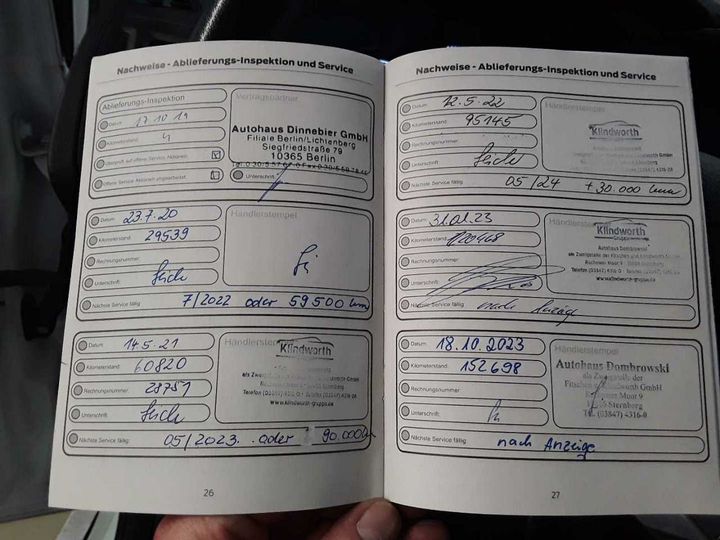 Nachweise - Ablieferungs-Inspektion und Service
Ablieferungs-Inspektion
Datum: 17.10.19
Kilometerstand: 4
Überprüft auf offene Service Aktionen:
Offene Service Aktionen abgearbeitet:
Vertragspartner
Autohaus Dinnebier GmbH
Filiale Berlin/Lichtenberg
Siegfriedstraße 79
10365 Berlin
Unterschrift:
Datum: 23.7.20
Kilometerstand: 29539
Rechnungsnummer:
Unterschrift:
Händlerstempel
Nächste Service fällig: 7/2022 oder 59500 km
Datum: 14.5.21
Kilometerstand: 60820
Rechnungsnummer:
Unterschrift:
Händlerstempel
Klindworth
Telefon (03847) 4316-0
www.klindworth-gruppe.de
Nächste Service fällig: 05/2023. oder 90.000 km
26
Nachweise - Ablieferungs-Inspektion und Service
Datum: 12.5.22
Kilometerstand: 95145
Rechnungsnummer:
Unterschrift:
Händlerstempel
Klindworth
Nächste Service fällig: 05/24 +30.000 km
Datum: 31.01.23
Kilometerstand: 120468
Rechnungsnummer:
Unterschrift:
Händlerstempel
Klindworth
Autohaus Dombrowski
Telefon (03847) 4316-0
www.klindworth-gruppe.de
Nächste Service fällig: nach Anzeige
Datum: 18.10.2023
Kilometerstand: 152698
Rechnungsnummer:
Unterschrift:
Händlerstempel
Autohaus Dombrowski
als Zweigndl. der
Fritschen Klindworth GmbH
Moor 9
Sternberg
Tel. (03847) 4316-0
Nächste Service fällig: nach Anzeige
27